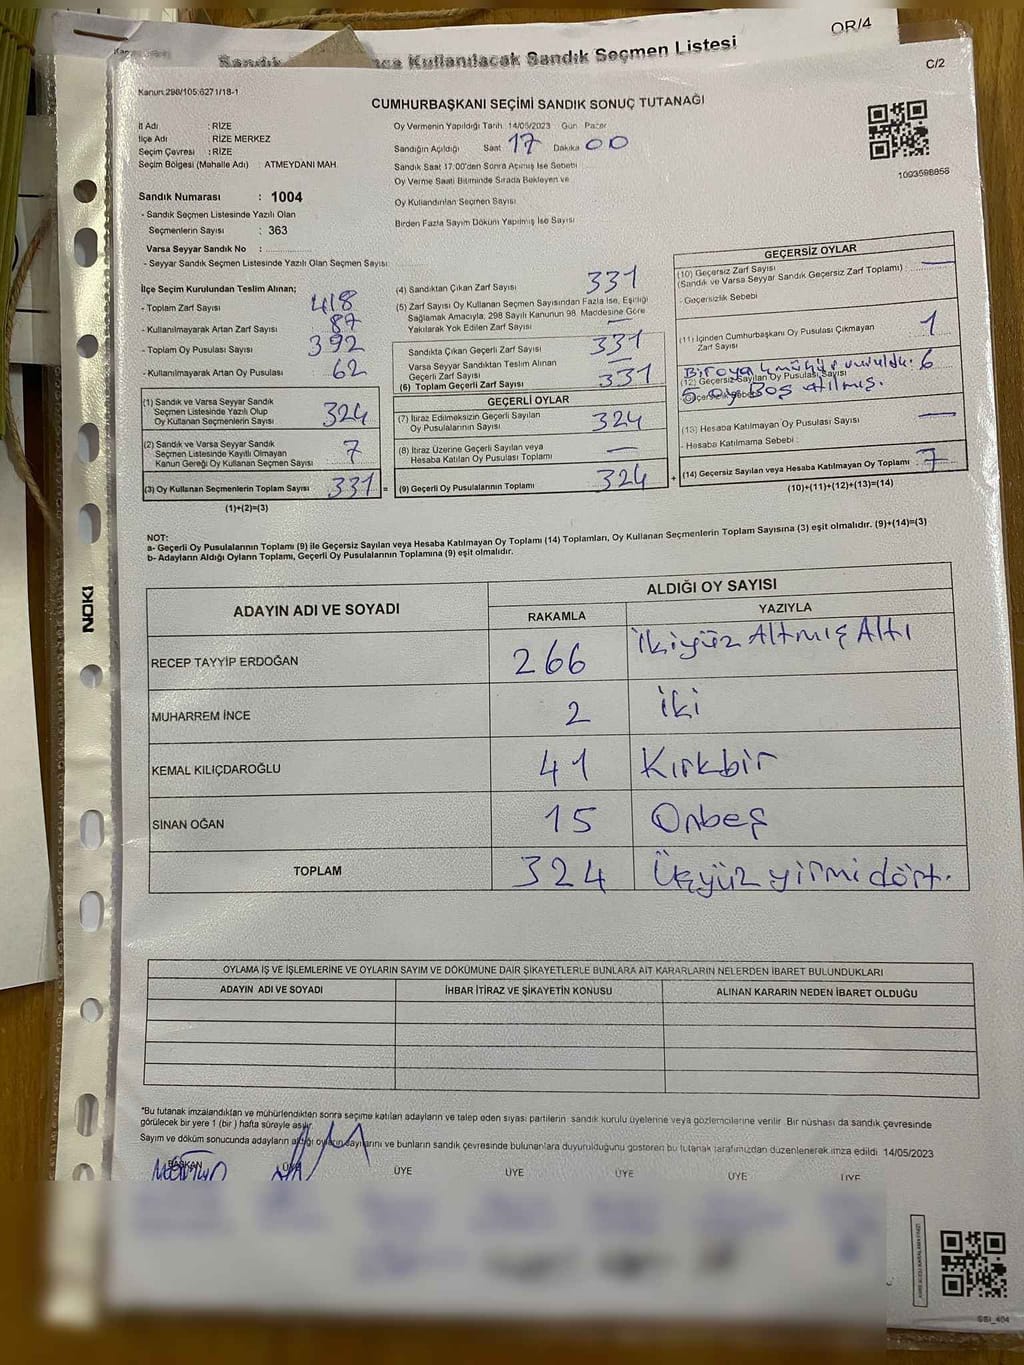 OR/4
Kullanılacak Sandık Seçmen Listesi
C/2
Kanun:298/105;6271/18-1
CUMHURBAŞKANI SEÇİMİ SANDIK SONUÇ TUTANAĞI
İl Adı : RİZE
İlçe Adı : RİZE MERKEZ
Seçim Çevresi : RİZE
Seçim Bölgesi (Mahalle Adı) : ATMEYDANI MAH.
Sandık Numarası : 1004
- Sandık Seçmen Listesinde Yazılı Olan
Seçmenlerin Sayısı : 363
Varsa Seyyar Sandık No :
- Seyyar Sandık Seçmen Listesinde Yazılı Olan Seçmen Sayısı:
Oy Vermenin Yapıldığı Tarih 14/05/2023 Gün Pazar
Sandığın Açıldığı Saat 17 Dakika 00
Sandık Saat 17.00'den Sonra Açılmış İse Sebebi
Oy Verme Saati Bitiminde Sırada Bekleyen ve
Oy Kullandırılan Seçmen Sayısı
Birden Fazla Sayım Döküm Yapılmış İse Sayısı
1093598856
İlçe Seçim Kurulundan Teslim Alınan;
- Toplam Zarf Sayısı 418
- Kullanılmayarak Artan Zarf Sayısı 87
- Toplam Oy Pusulası Sayısı 392
- Kullanılmayarak Artan Oy Pusulası 62
(1) Sandık ve Varsa Seyyar Sandık
Seçmen Listesinde Yazılı Olup
Oy Kullanan Seçmenlerin Sayısı 324
(2) Sandık ve Varsa Seyyar Sandık
Seçmen Listesinde Kayıtlı Olmayan
Kanun Gereği Oy Kullanan Seçmen Sayısı 7
(3) Oy Kullanan Seçmenlerin Toplam Sayısı 331 =
(1)+(2)=(3)
(4) Sandıktan Çıkan Zarf Sayısı 331
(5) Zarf Sayısı Oy Kullanan Seçmen Sayısından Fazla İse, Eşitliği
Sağlamak Amacıyla, 298 Sayılı Kanunun 98. Maddesine Göre
Yakılarak Yok Edilen Zarf Sayısı —
Sandıkta Çıkan Geçerli Zarf Sayısı 331
Varsa Seyyar Sandıktan Teslim Alınan
Geçerli Zarf Sayısı —
(6) Toplam Geçerli Zarf Sayısı 331
GEÇERLİ OYLAR
(7) İtiraz Edilmeksizin Geçerli Sayılan
Oy Pusulalarının Sayısı 324
(8) İtiraz Üzerine Geçerli Sayılan veya
Hesaba Katılan Oy Pusulası Toplamı —
(9) Geçerli Oy Pusulalarının Toplamı 324 +
GEÇERSİZ OYLAR
(10) Geçersiz Zarf Sayısı
(Sandık ve Varsa Seyyar Sandık Geçersiz Zarf Toplamı) : —
- Geçersizlik Sebebi
(11) İçinden Cumhurbaşkanı Oy Pusulası Çıkmayan
Zarf Sayısı 1
Bir oya 4 mühür vuruldu. 6
(12) Geçersiz Sayılan Oy Pusulası Sayısı
5 oy Boş atılmış.
(13) Hesaba Katılmayan Oy Pusulası Sayısı —
- Hesaba Katılmama Sebebi :
(14) Geçersiz Sayılan veya Hesaba Katılmayan Oy Toplamı 7
(10)+(11)+(12)+(13)=(14)
NOT:
a- Geçerli Oy Pusulalarının Toplamı (9) ile Geçersiz Sayılan veya Hesaba Katılmayan Oy Toplamı (14) Toplamları, Oy Kullanan Seçmenlerin Toplam Sayısına (3) eşit olmalıdır. (9)+(14)=(3)
b- Adayların Aldığı Oyların Toplamı, Geçerli Oy Pusulalarının Toplamına (9) eşit olmalıdır.
ADAYIN ADI VE SOYADI ALDIĞI OY SAYISI
RAKAMLA YAZIYLA
RECEP TAYYİP ERDOĞAN 266 İkiyüz Altmış Altı
MUHARREM İNCE 2 iki
KEMAL KILIÇDAROĞLU 41 Kırkbir
SİNAN OĞAN 15 Onbeş
TOPLAM 324 Üçyüz yirmi dört.
OYLAMA İŞ VE İŞLEMLERİNE VE OYLARIN SAYIM VE DÖKÜMÜNE DAİR ŞİKAYETLERLE BUNLARA AİT KARARLARIN NELERDEN İBARET BULUNDUKLARI
ADAYIN ADI VE SOYADI İHBAR İTİRAZ VE ŞİKAYETİN KONUSU ALINAN KARARIN NEDEN İBARET OLDUĞU
*Bu tutanak imzalandıktan ve mühürlendikten sonra seçime katılan adayların ve talep eden siyasi partilerin sandık kurulu üyelerine veya gözlemcilerine verilir. Bir nüshası da sandık çevresinde
görülecek bir yere 1 (bir) hafta süreyle asılır.
Sayım ve döküm sonucunda adayların aldığı oyların sayılarını ve bunların sandık çevresinde bulunanlara duyurulduğunu gösteren bu tutanak tarafımızdan düzenlenerek imza edildi 14/05/2023
BAŞKAN ÜYE ÜYE ÜYE ÜYE ÜYE ÜYE
SSI_404
NOKI